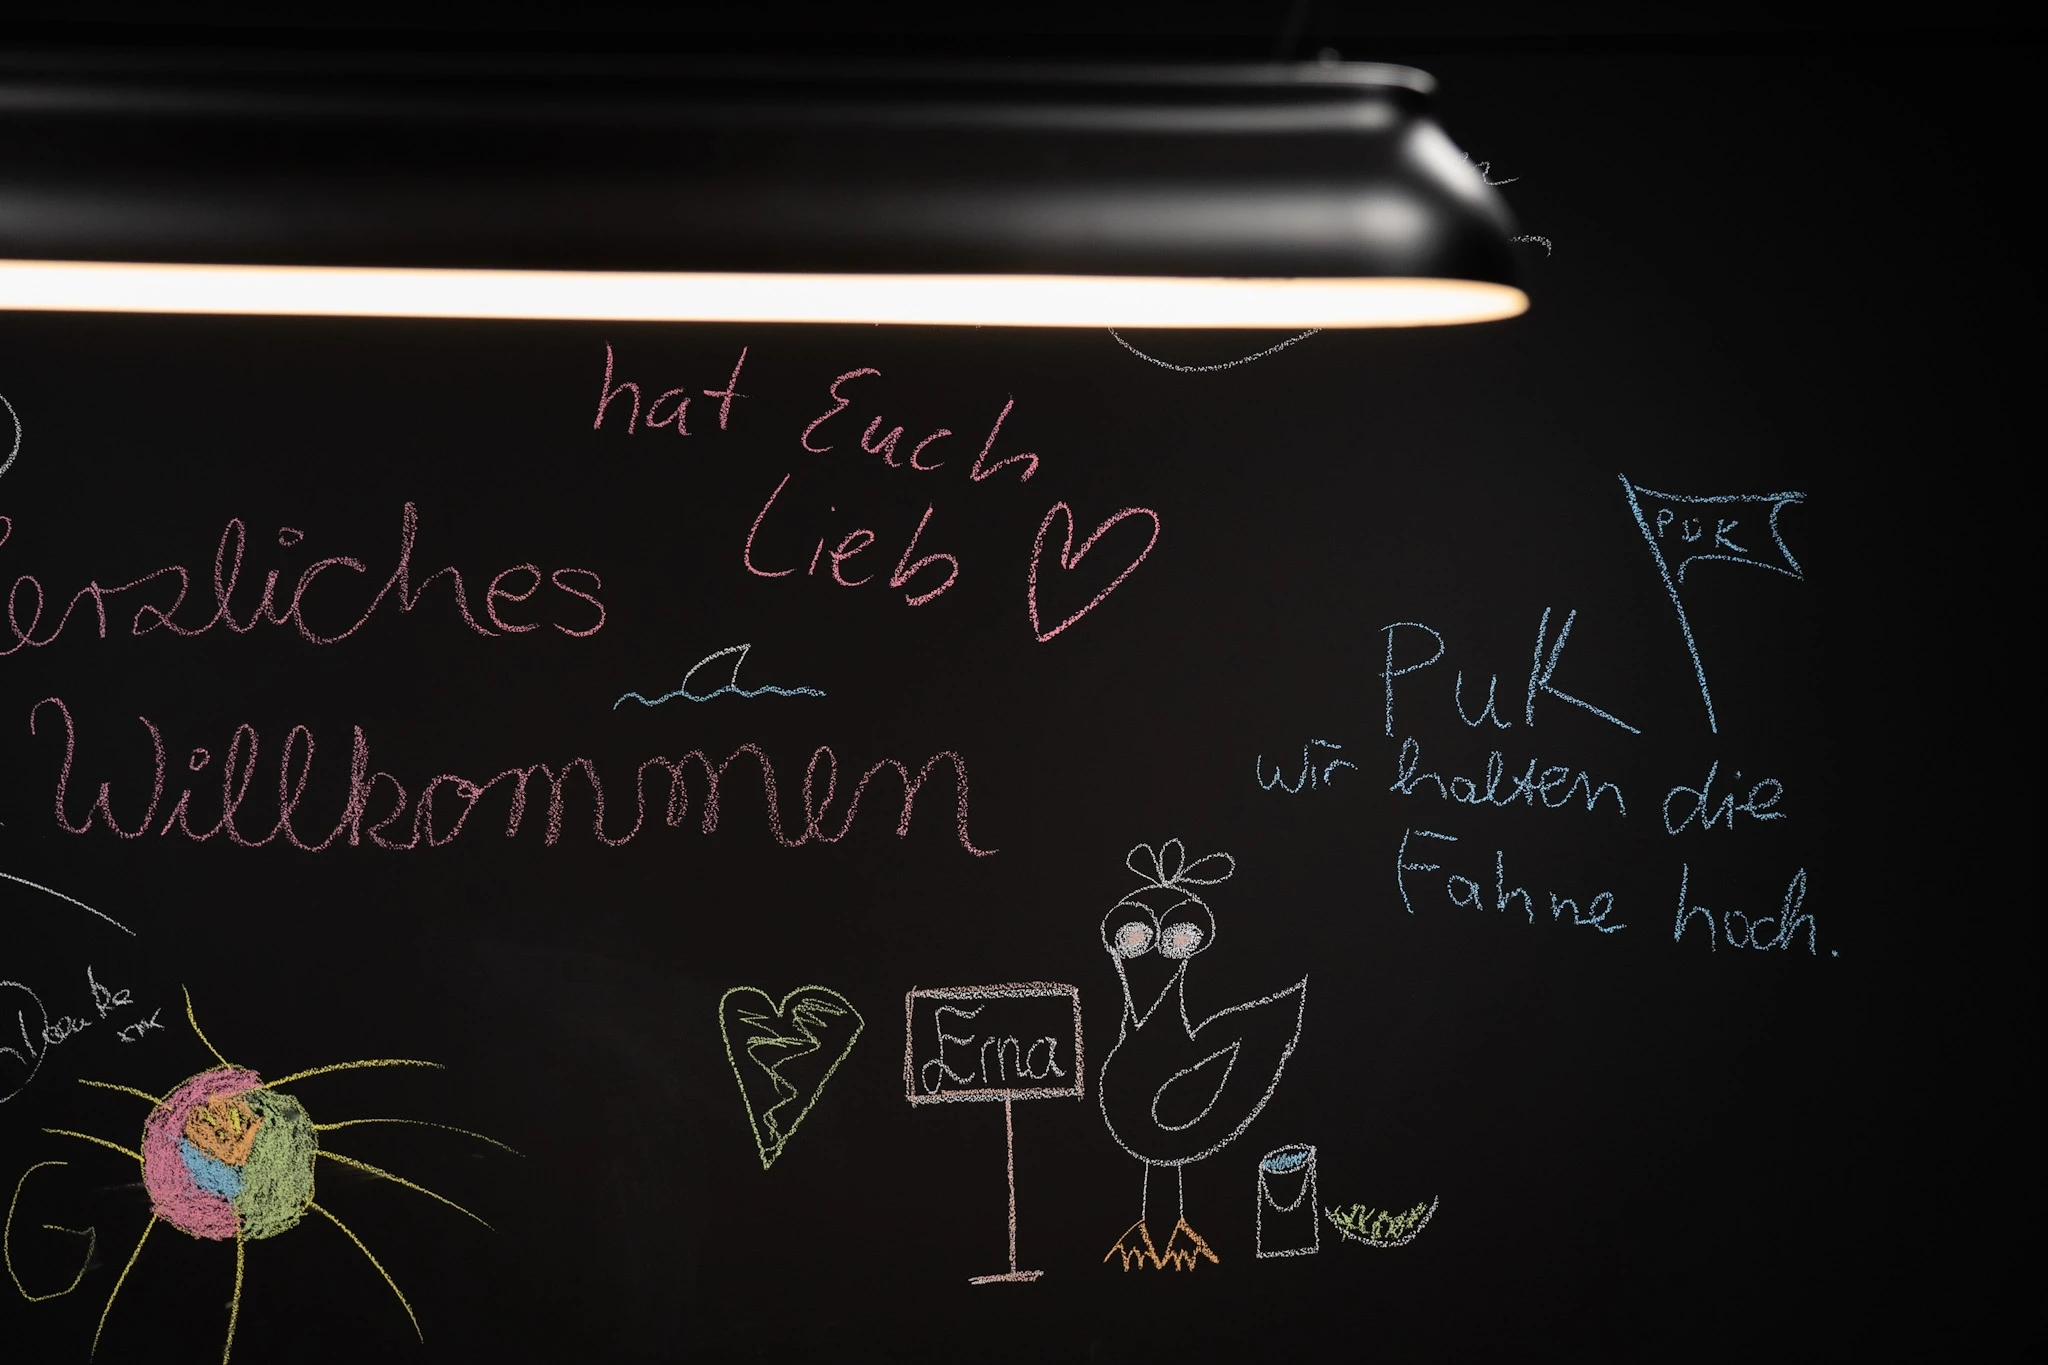 hat Euch
Lieb
erzliches
Willkommen
PUK
PuK
wir halten die
Fahne hoch.
Danke
Erna
G